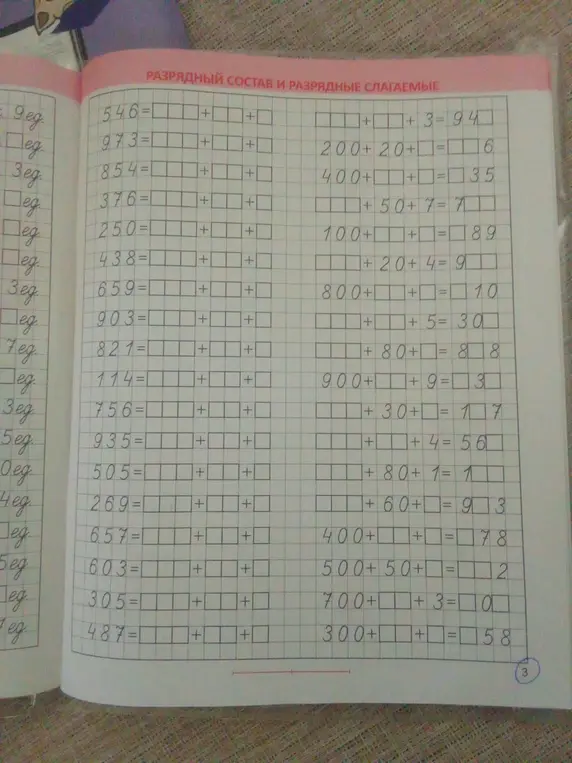 РАЗРЯДНЫЙ СОСТАВ И РАЗРЯДНЫЕ СЛАГАЕМЫЕ
9ед.
ед.
3ед.
ед.
ед.
ед.
3ед.
ед.
7ед.
ед.
3ед.
5ед.
0ед.
4ед.
ед.
5ед.
ед.
ед.
546=□□□+□□+□
973=□□□+□□+□
854=□□□+□□+□
376=□□□+□□+□
250=□□□+□□+□
438=□□□+□□+□
659=□□□+□□+□
903=□□□+□□+□
821=□□□+□□+□
114=□□□+□□+□
756=□□□+□□+□
935=□□□+□□+□
505=□□□+□□+□
269=□□□+□□+□
657=□□□+□□+□
603=□□□+□□+□
305=□□□+□□+□
487=□□□+□□+□
□□□+□□+3=94□
200+20+□=□□6
400+□□+□=□35
□□□+50+7=7□□
100+□□+□=□89
□□□+20+4=9□□
800+□□+□=□10
□□□+□□+5=30□
□□□+80+□=8□8
900+□□+9=□3□
□□□+30+□=1□7
□□□+□□+4=56□
□□□+80+1=1□□
□□□+60+□=9□3
400+□□+□=□78
500+50+□=□□2
700+□□+3=□0□
300+□□+□=□58
3